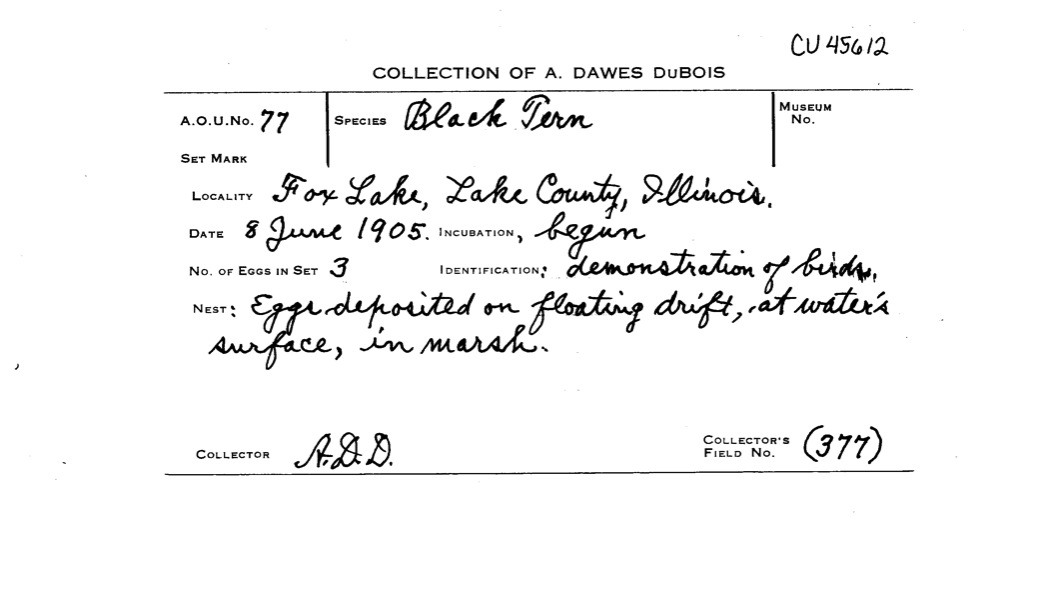 CU 45612
COLLECTION OF A. DAWES DUBOIS
A.O.U.No. 77 SPECIES Black Tern MUSEUM No.
SET MARK
LOCALITY Fox Lake, Lake County, Illinois.
DATE 8 June 1905. INCUBATION, begun
NO. OF EGGS IN SET 3 IDENTIFICATION: demonstration of birds.
NEST: Eggs deposited on floating drift, at water's
surface, in marsh.
COLLECTOR A.D.D. COLLECTOR'S FIELD NO. (377)